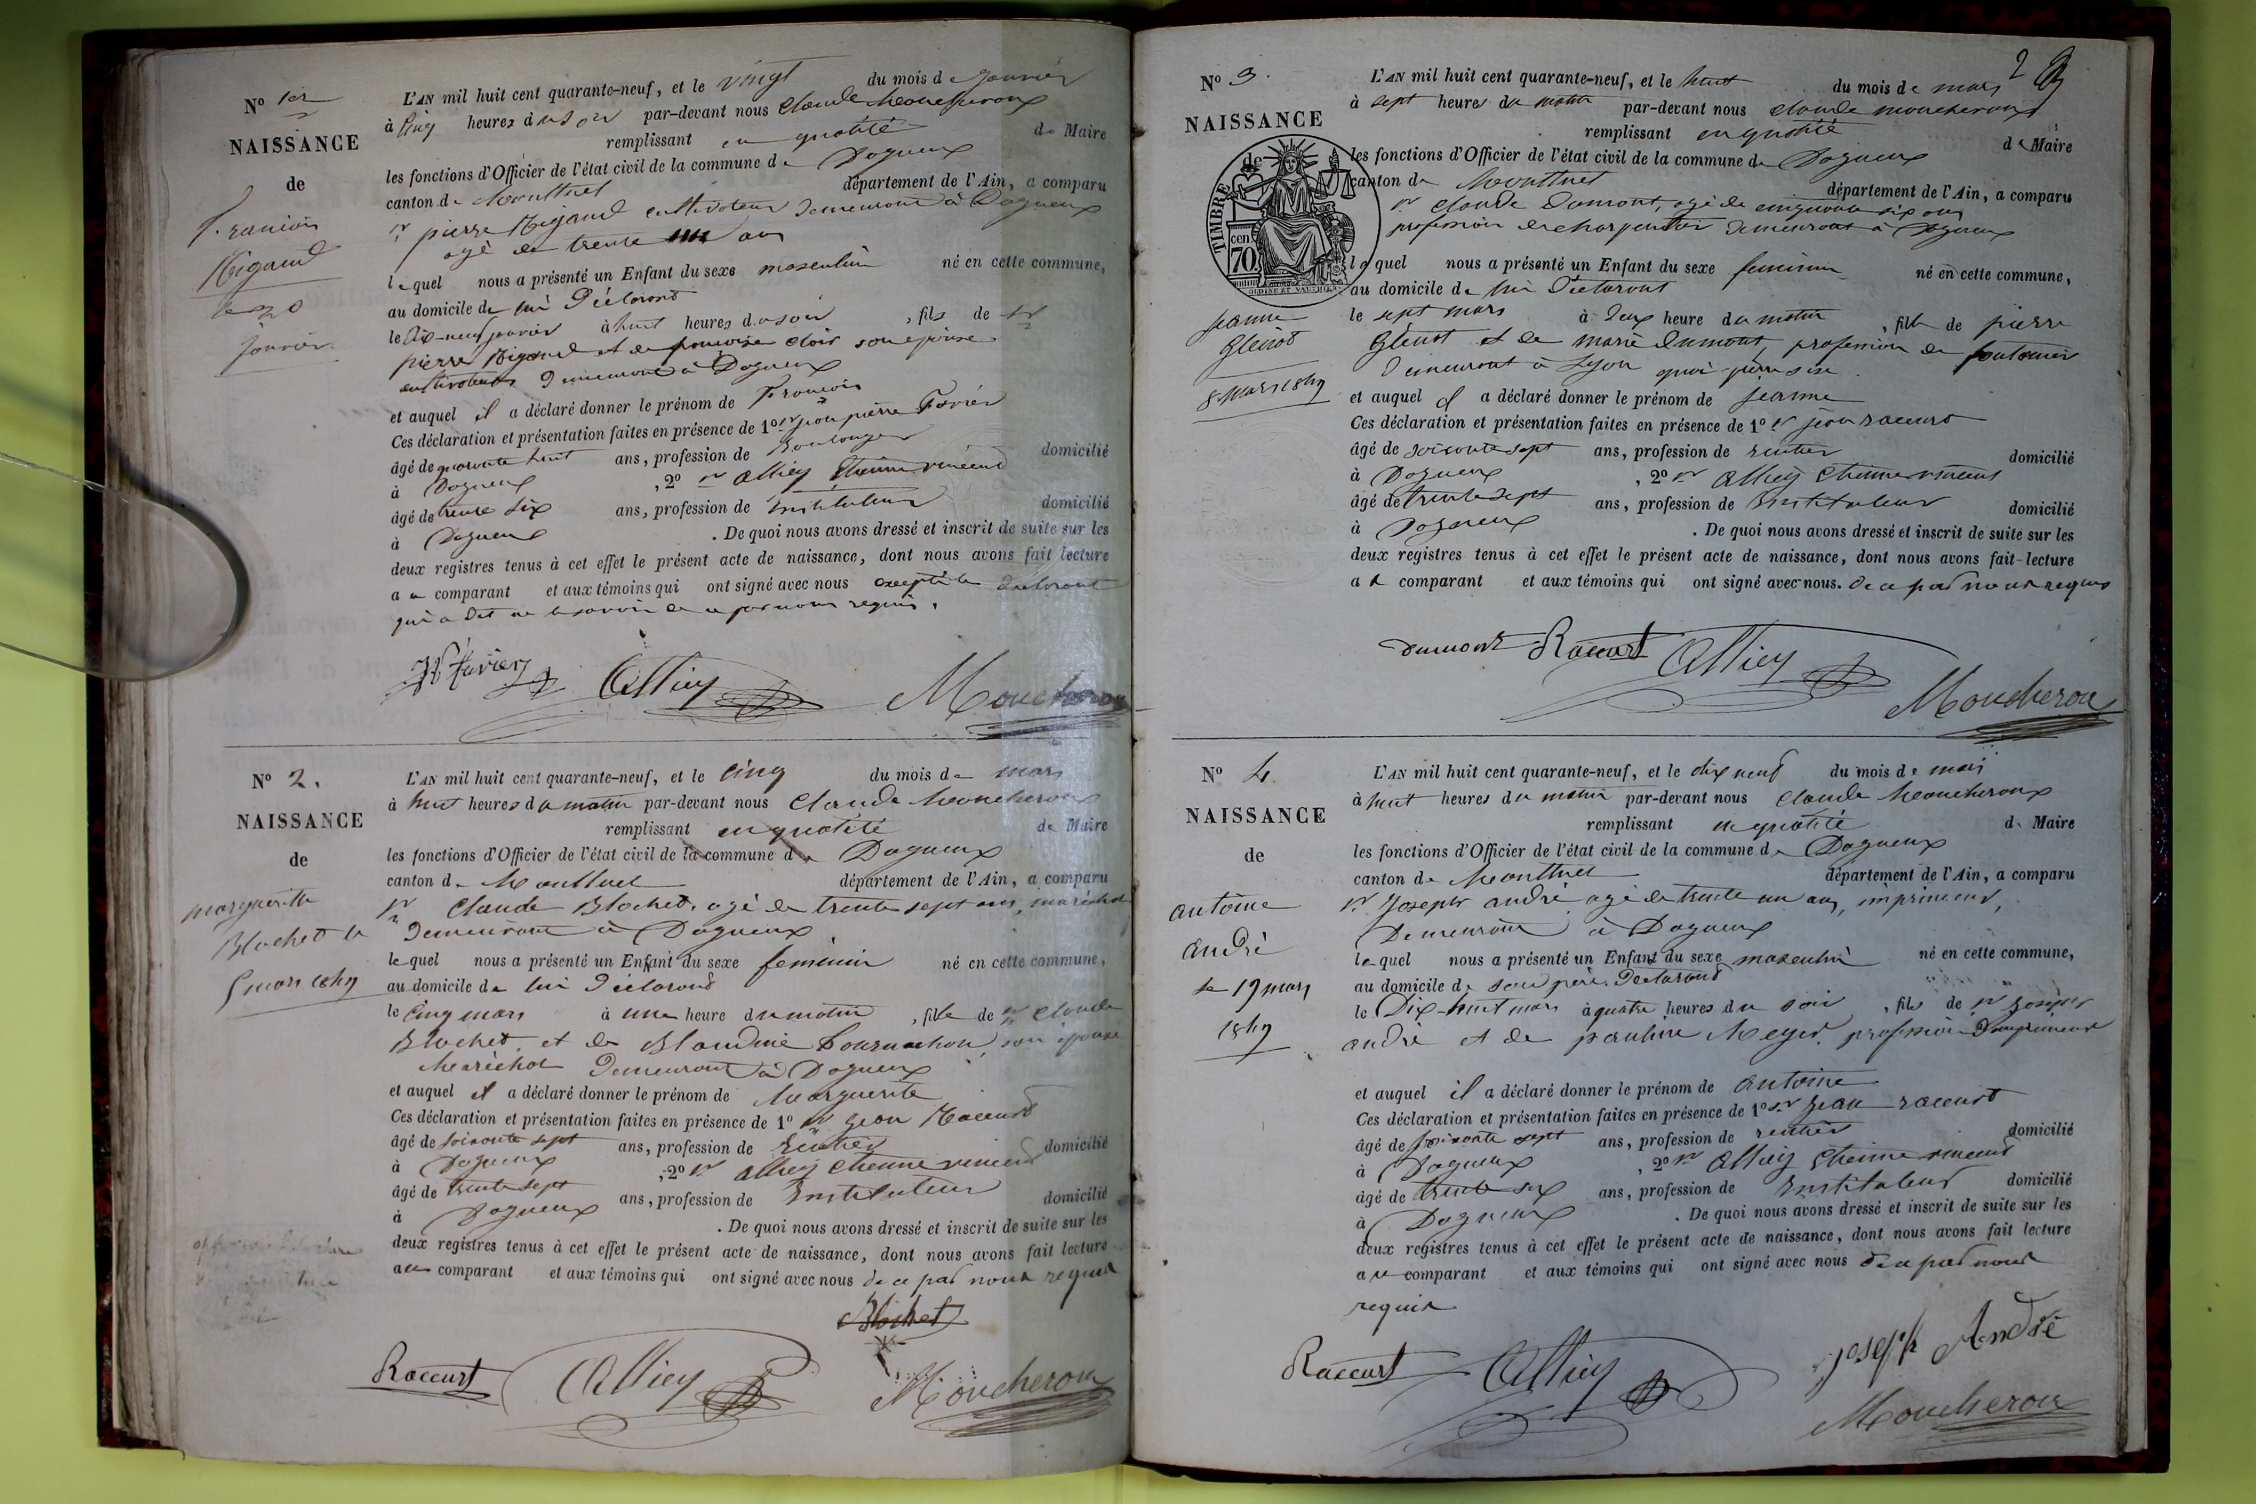 N° 1er
NAISSANCE
de
françois
Rigaud
le 20
janvier
L'AN mil huit cent quarante-neuf, et le vingt du mois de janvier
à cinq heures du soir par-devant nous Claude Moucheroux
remplissant en qualité de Maire
les fonctions d'Officier de l'état civil de la commune de Dagneux
canton de Montluel département de l'Ain, a comparu
sr pierre Rigaud cultivateur demeurant à Dagneux
agé de trente ans
lequel nous a présenté un Enfant du sexe masculin né en cette commune,
au domicile de lui Déclarant
le dix-neuf janvier à huit heures du soir, fils de sr
pierre Rigaud et de françoise clair son épouse
cultivateurs demeurant à Dagneux
et auquel il a déclaré donner le prénom de François
Ces déclaration et présentation faites en présence de 1° sr jean pierre Favier
âgé de quarante huit ans, profession de Boulanger domicilié
à Dagneux, 2° sr Alliey Etienne vincent
âgé de trente six ans, profession de instituteur domicilié
à Dagneux. De quoi nous avons dressé et inscrit de suite sur les
deux registres tenus à cet effet le présent acte de naissance, dont nous avons fait lecture
au comparant et aux témoins qui ont signé avec nous excepté le déclarant
qui a dit ne le savoir de ce par nous requis.
JP Favier Alliey Moucheroux
N° 2.
NAISSANCE
de
marguerite
Blochet le
5 mars 1849
L'AN mil huit cent quarante-neuf, et le cinq du mois de mars
à huit heures du matin par-devant nous Claude Moucheroux
remplissant en qualité de Maire
les fonctions d'Officier de l'état civil de la commune de Dagneux
canton de Montluel département de l'Ain, a comparu
sr Claude Blochet, agé de trente sept ans, maréchal
demeurant à Dagneux
lequel nous a présenté un Enfant du sexe feminin né en cette commune,
au domicile de lui Déclarant
le cinq mars à une heure du matin, fille de sr Claude
Blochet et de Blandine son épouse
Maréchal demeurant à Dagneux
et auquel il a déclaré donner le prénom de Marguerite
Ces déclaration et présentation faites en présence de 1° sr jean Raccurt
âgé de soixante sept ans, profession de rentier domicilié
à Dagneux, 2° sr alliey Etienne vincent
âgé de trente sept ans, profession de Instituteur domicilié
à Dagneux. De quoi nous avons dressé et inscrit de suite sur les
deux registres tenus à cet effet le présent acte de naissance, dont nous avons fait lecture
au comparant et aux témoins qui ont signé avec nous de ce par nous requis
Blochet
Raccurt Alliey Moucheroux
2
N° 3.
NAISSANCE
de
TIMBRE
cen
70
jeanne
Glénat
8 mars 1849
L'AN mil huit cent quarante-neuf, et le huit du mois de mars
à sept heures du matin par-devant nous claude moucheroux
remplissant en qualité de Maire
les fonctions d'Officier de l'état civil de la commune de Dagneux
canton de Montluel département de l'Ain, a comparu
sr claude Dumont, agé de cinquante six ans
profession de charpentier demeurant à Dagneux
lequel nous a présenté un Enfant du sexe feminin né en cette commune,
au domicile de lui Déclarant
le sept mars à deux heure du matin, fille de pierre
Glénat et de marie Dumont, profession de
demeurant à Lyon quai pierre sise
et auquel il a déclaré donner le prénom de jeanne
Ces déclaration et présentation faites en présence de 1° sr jean raccurt
âgé de soixante sept ans, profession de rentier domicilié
à Dagneux, 2° sr Alliey Etienne vincent
âgé de trente sept ans, profession de Instituteur domicilié
à Dagneux. De quoi nous avons dressé et inscrit de suite sur les
deux registres tenus à cet effet le présent acte de naissance, dont nous avons fait lecture
au comparant et aux témoins qui ont signé avec nous. de ce par nous requis
Dumont Raccurt Alliey
Moucheroux
N° 4.
NAISSANCE
de
antoine
andré
le 19 mars
1849
L'AN mil huit cent quarante-neuf, et le dix neuf du mois de mars
à huit heures du matin par-devant nous Claude Moucheroux
remplissant en qualité de Maire
les fonctions d'Officier de l'état civil de la commune de Dagneux
canton de Montluel département de l'Ain, a comparu
sr Joseph andré agé de trente un ans, imprimeur,
Demeurant à Dagneux
lequel nous a présenté un Enfant du sexe masculin né en cette commune,
au domicile de son père Déclarant
le Dix-huit mars à quatre heures du soir, fils de sr Joseph
andré et de pauline Meyer, profession D'imprimeur
et auquel il a déclaré donner le prénom de antoine
Ces déclaration et présentation faites en présence de 1° sr jean raccurt
âgé de soixante sept ans, profession de rentier domicilié
à Dagneux, 2° sr Alliey Etienne vincent
âgé de trente six ans, profession de Instituteur domicilié
à Dagneux. De quoi nous avons dressé et inscrit de suite sur les
deux registres tenus à cet effet le présent acte de naissance, dont nous avons fait lecture
au comparant et aux témoins qui ont signé avec nous de ce par nous
requis
Raccurt Alliey joseph André
Moucheroux